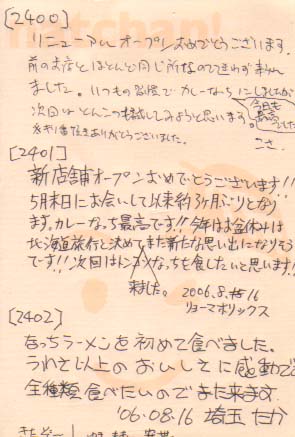 [2400]
リニューアルオープンおめでとうございます。
前のお店とほとんど同じ所なので迷わず来れ
ました。いつもの習慣でカレーなっちにしましたが
次回はとんこつも試してみようと思います。
今日も
最高
でした
ありがとうございました。
[2401]
新店舗オープンおめでとうございます!!
5月末日にお会いして以来約3ヶ月ぶりとなり
ます。カレーなっち最高です!!今年はお盆休みは
北海道旅行と決めてまた新たな思い出になりそう
です!!次回はトンコツなっちも食したいと思います!!
来ました。 2006.8.16
リョーマオリックス
[2402]
なっちラーメンを初めて食べました。
うわさ以上のおいしさに感動で
全種類食べたいのでまた来ます。
'06.08.16 埼玉 たか